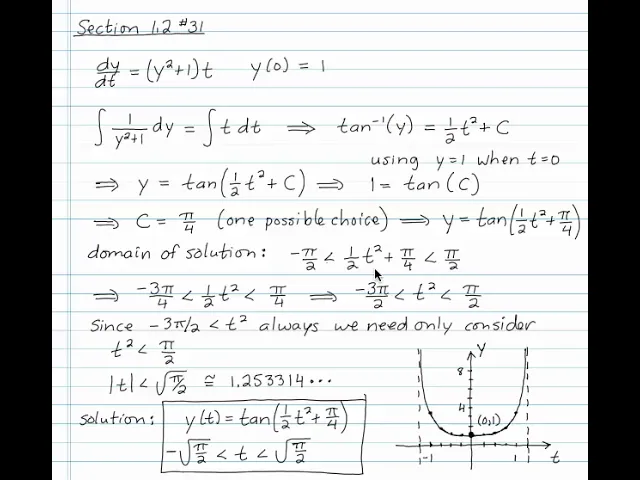 Section 1.2 #31
dy/dt = (y²+1)t   y(0) = 1
∫ 1/(y²+1) dy = ∫ t dt ⟹ tan⁻¹(y) = ½t² + C
using y=1 when t=0
⟹ y = tan(½t² + C) ⟹ 1 = tan(C)
⟹ C = π/4 (one possible choice) ⟹ y = tan(½t² + π/4)
domain of solution: -π/2 < ½t² + π/4 < π/2
⟹ -3π/4 < ½t² < π/4 ⟹ -3π/2 < t² < π/2
Since -3π/2 < t² always we need only consider
t² < π/2
|t| < √(π/2) ≅ 1.253314...
solution: y(t) = tan(½t² + π/4)
-√(π/2) < t < √(π/2)
y
8
4
(0,1)
-1
1
t